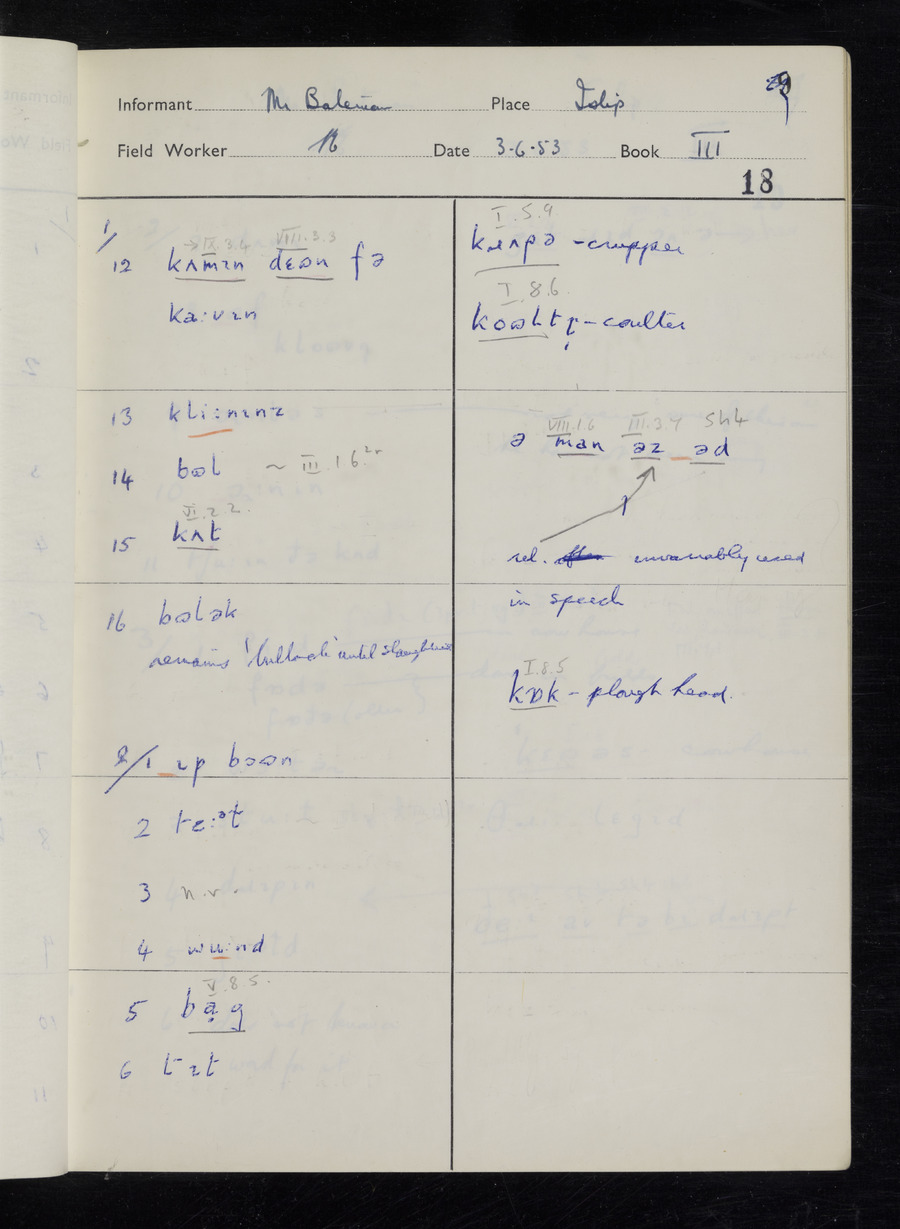 Informant Mr Bateman Place Islip
Field Worker Date 3-6-53 Book III
18
1/
→IX.3.4 VIII.3.3
12 kʌmɪn dɛʊn fə
ka:vɪn
I.5.9
kɹʌpə - crupper
I.8.6
koʊltɚ - coulter
13 kli:nɪnz
14 bʊl ~ III.1.6
VI.2.2.
15 kʌt
VIII.1.6 III.3.7 Sh4
ə man əz əd
rel. invariably used
in speech
16 bʊlək
remains 'bullock' until slaughtered
I.8.5
kɒk - plough head.
2/1 ɪp boən
2
3 n.v.
4 wu:nd
V.8.5.
5 bag
6 tɪt